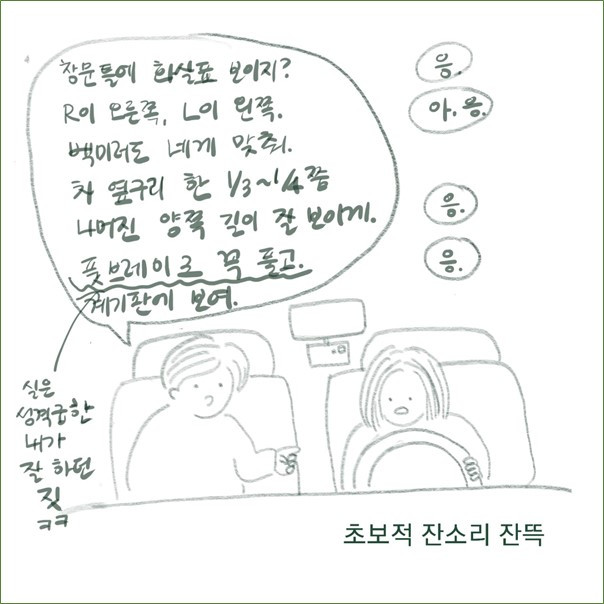 창문틀에 화살표 보이지?
R이 오른쪽, L이 왼쪽.
백미러도 네게 맞춰.
차 옆구리 한 1/3~1/4쯤
나머진 양쪽 길이 잘 보이게.
풋브레이크 꼭 풀고.
계기판에 보여.
응.
아. 응.
응.
응.
실은
성격급한
내가
잘 하던
짓
ㅋㅋ
초보적 잔소리 잔뜩